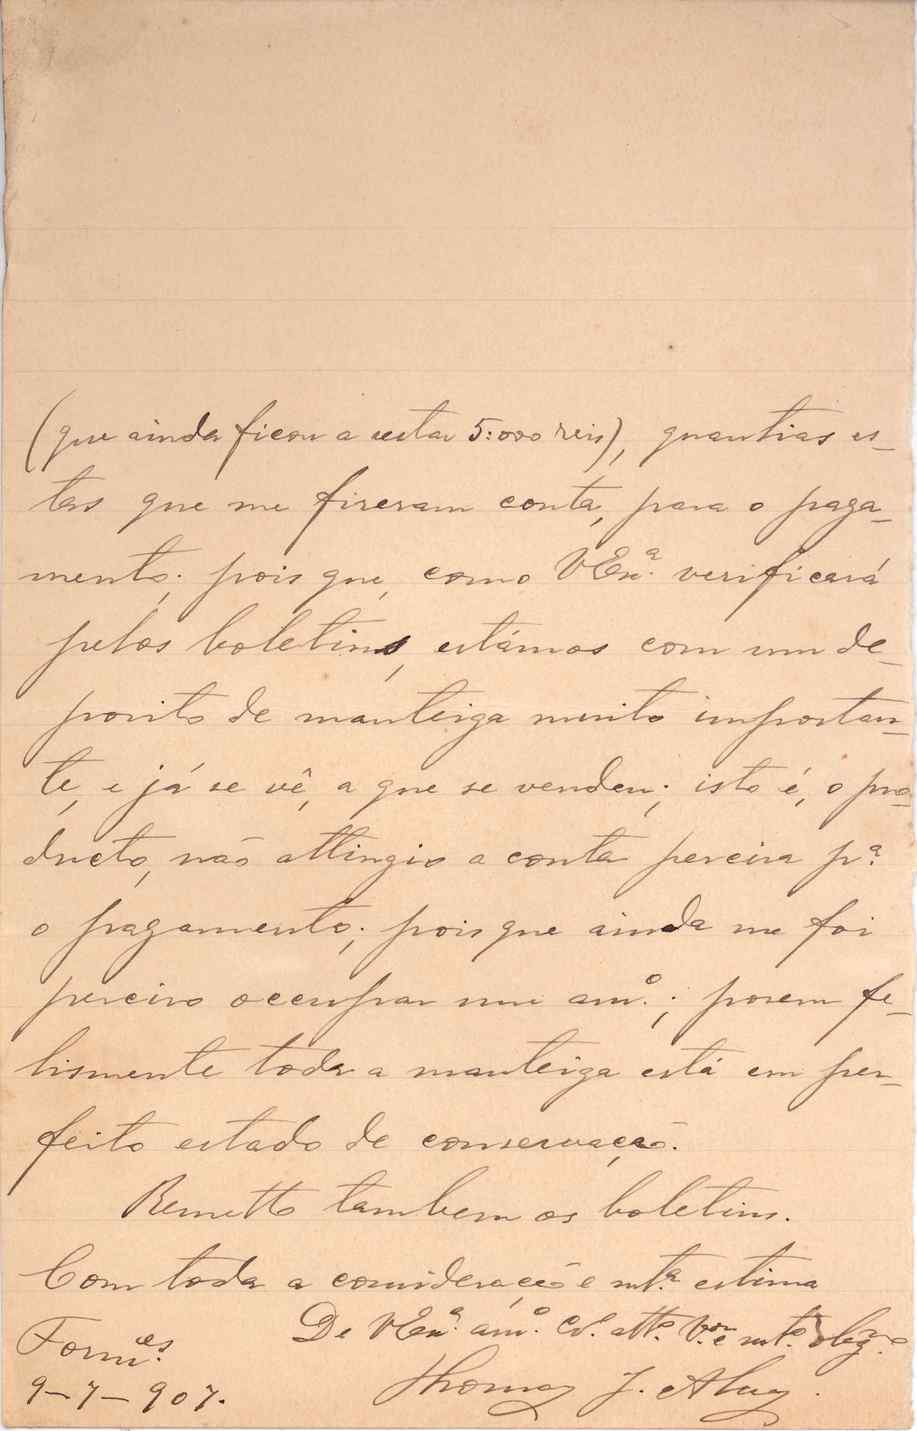 (que ainda ficou a restar 5:000 reis), quantias es-
tas que me fizeram conta, para o paga-
mento; pois que, como VExª. verificará
pelos boletins, estámos com um de-
posito de manteiga muito importan-
te, e já se vê, a que se vendeu; isto é, o pro-
ducto, não attingio a conta percisa pª.
o pagamento; pois que ainda me foi
perciso occupar um amº.; porem fe-
lismente toda a manteiga está em per-
feito estado de conservação.
Remetto tambem os boletins.
Com toda a consideração e mtª. estima
De VExª. amº. Crº. attº. Vᵒʳ. e mtº. obgᵐᵒ.
Fornᵉˢ.
9-7-907.
Thomaz J.